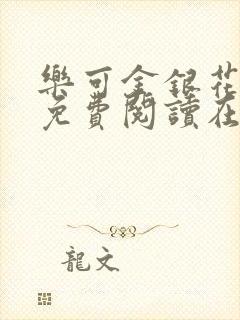 樂可金銀花
免費閱讀在
龍文